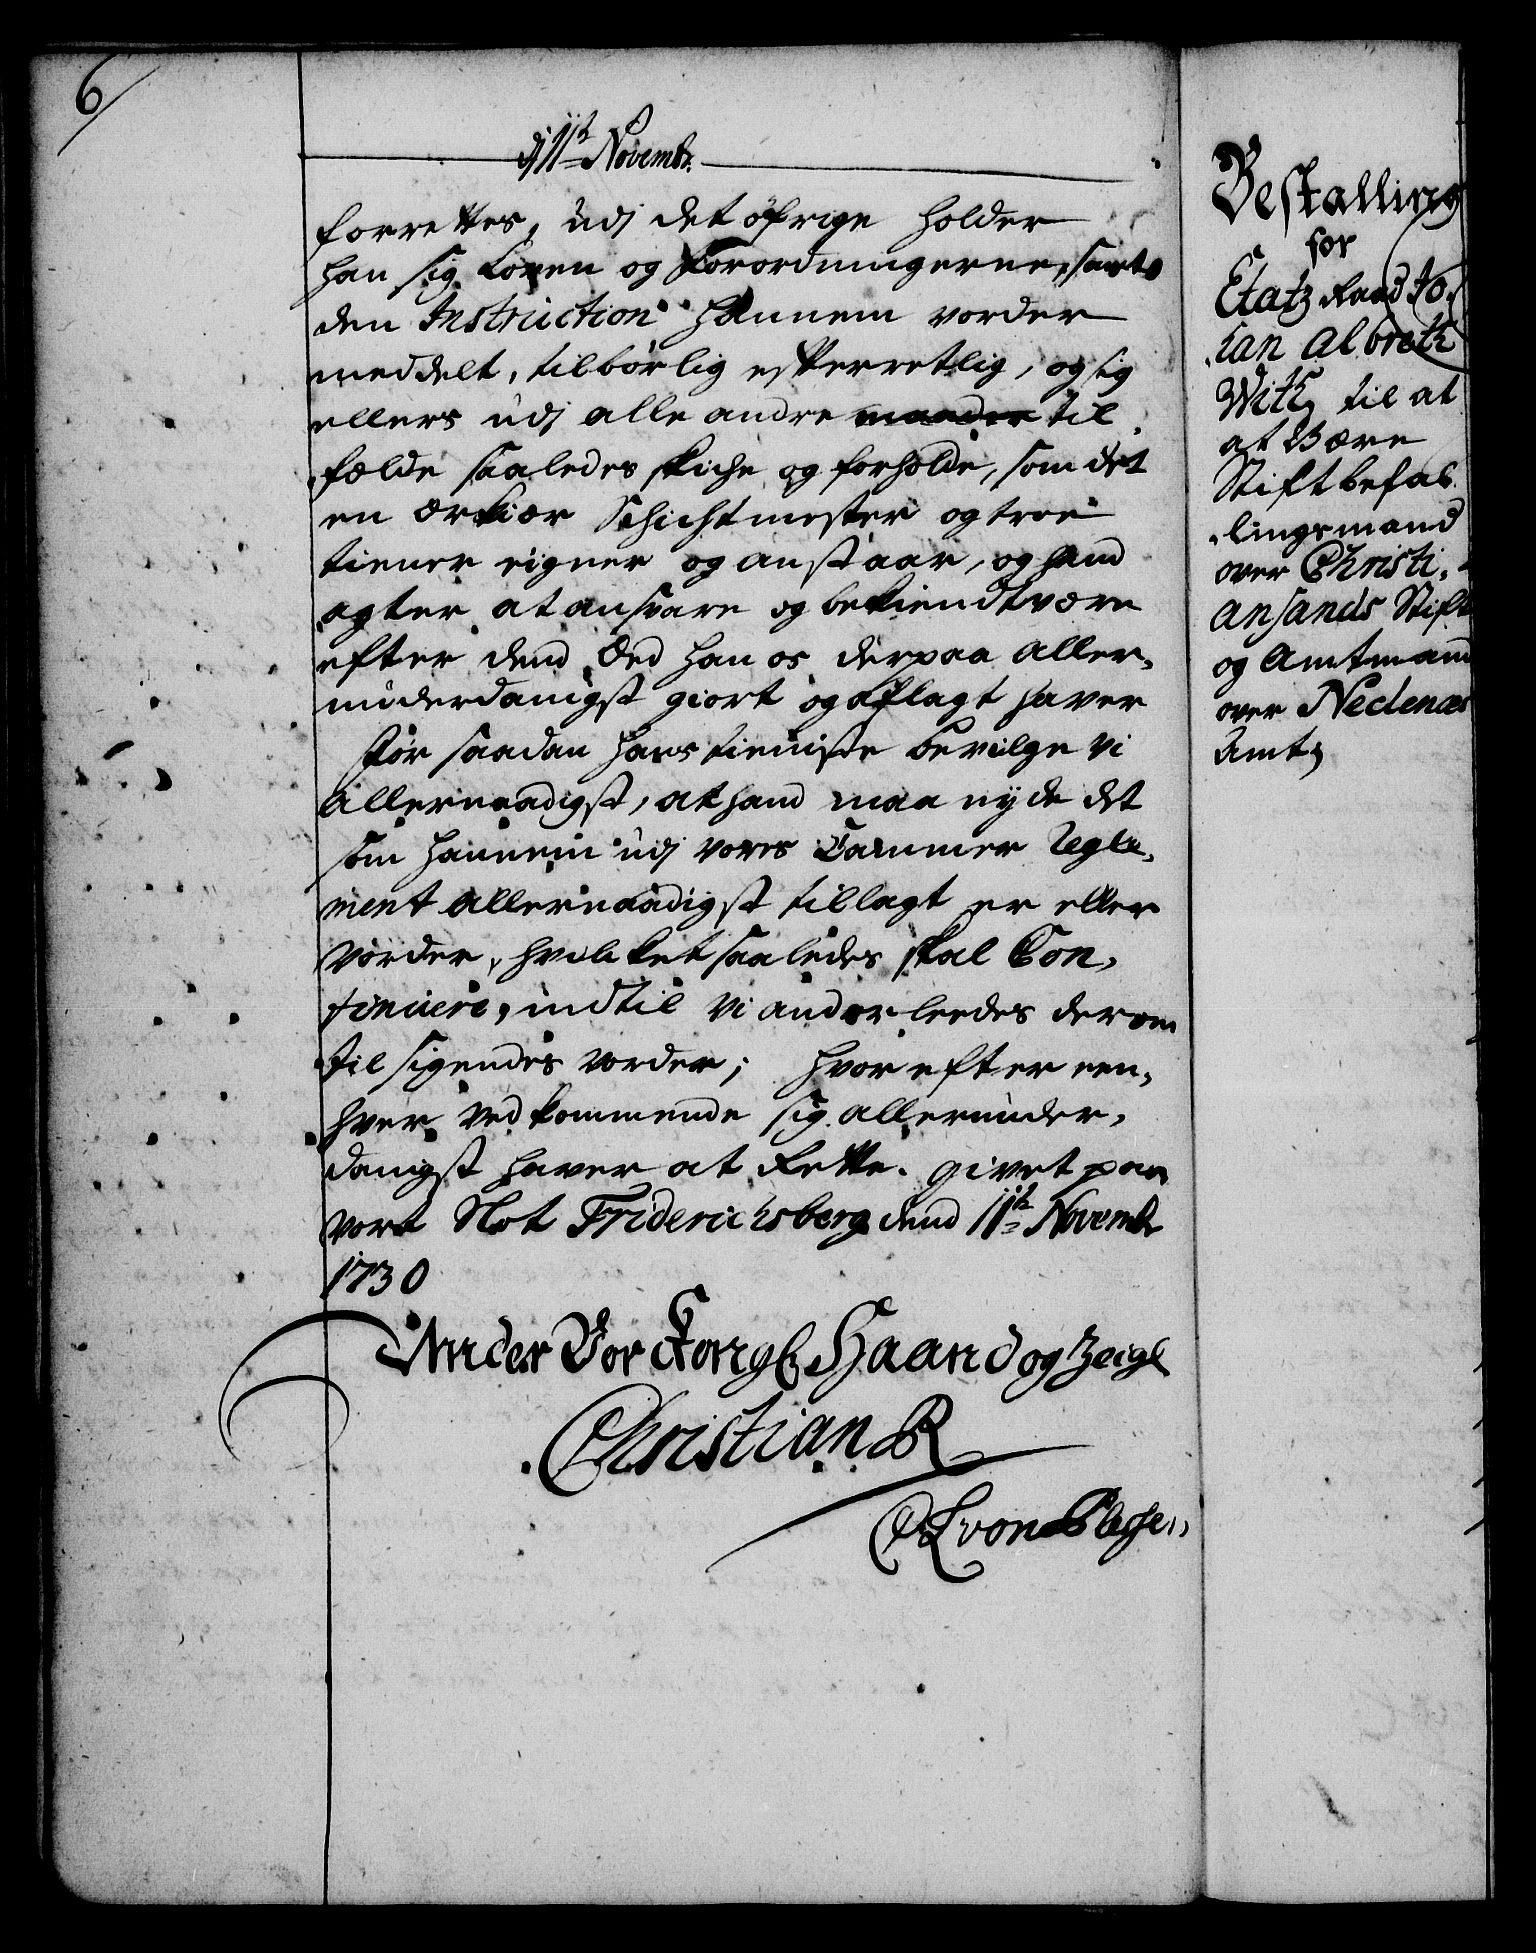 6
d 11te Novembr.
forrettes, udj det öfrige holder
han sig Loven og Forordningerne, samt
den Instruction hannem vorder
meddelt, tilbörlig efterretlig, og sig
ellers udj alle andre maader til
fælde saaledes skiche og forholde, som det
en ærkiær Schichtmester og troe
tiener eigner og anstaar, og hand
agter at ansvare og bekiendt være
efter dend Æed han os derpaa aller,
underdanigst giort og aflagt haver
For saadan hans tieniste bevilge Vi
allernaadigst, at hand maa nyde det
som hannem udj vores Cammer Regle,
ment allernaadigst tillagt er eller
vorder, hvilket saaledes skal Con,
tinuere, indtil Vi anderleedes derom
til sigendes vorder; hvor efter een,
hver vedkommende sig allerunder,
danigst haver at Rette. givet paa
vort Slot Friderichsberg dend 11te Novembr
1730
Under Vor Kongl Haand og Zeigl
Christian R
C A von Plessen
Bestalling
for
Etatz Raad Jo,
han Albreth
With til at
at Være
Stiftbefal
lingsmand
over Christi,
ansands Stift
og Amtmand
over Nedenæs
Amt